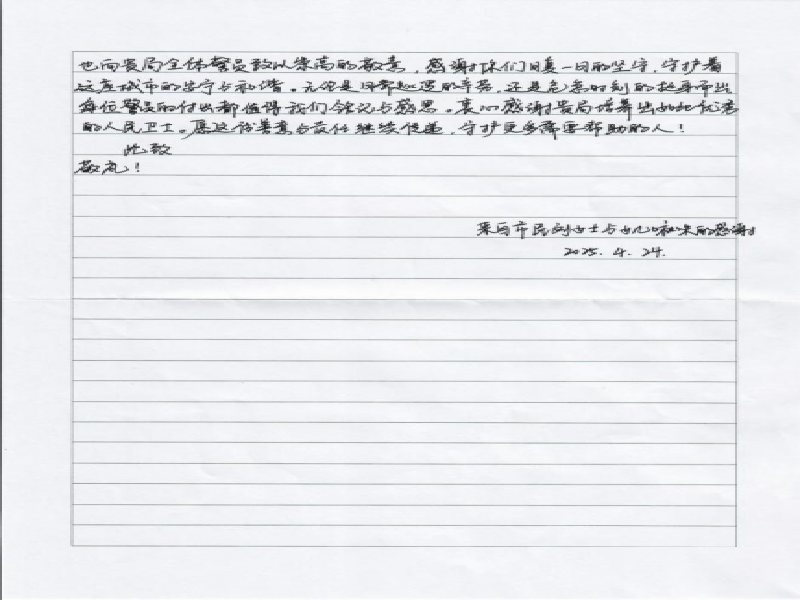 也向贵局全体警员致以崇高的敬意，感谢你们日复一日的坚守，守护着
这座城市的安宁与和谐。无论是日常巡逻的辛劳，还是危急时刻的挺身而出
每位警员的付出都值得我们铭记与感恩。衷心感谢贵局培养出如此优秀
的人民卫士。愿这份善意与责任继续传递，守护更多需要帮助的人！
此致
敬礼！
来自市民刘女士与女儿 的感谢
2025.4.24.